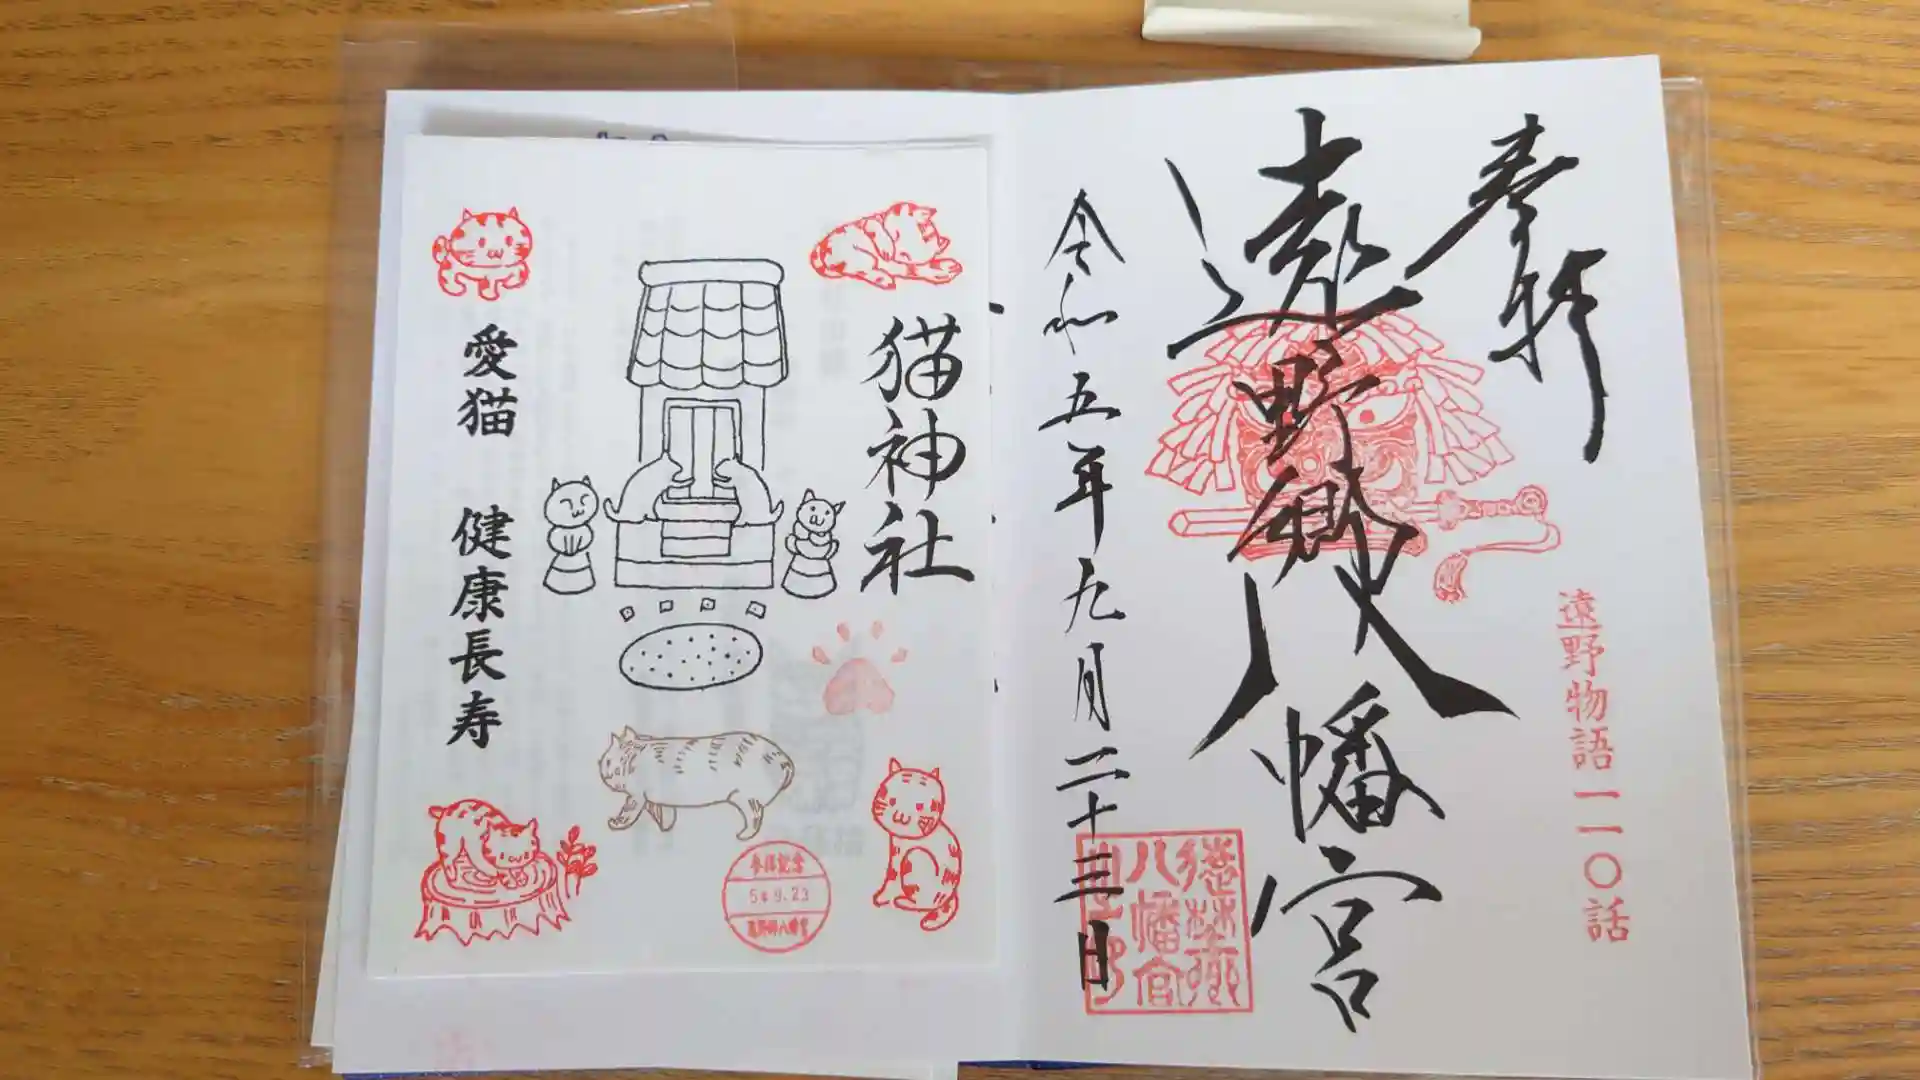 奉拝
遠野郷八幡宮
遠野物語一一〇話
令和五年九月二十三日
猫神社
愛猫 健康長寿
参拝記念
5.9.23
遠野郷八幡宮